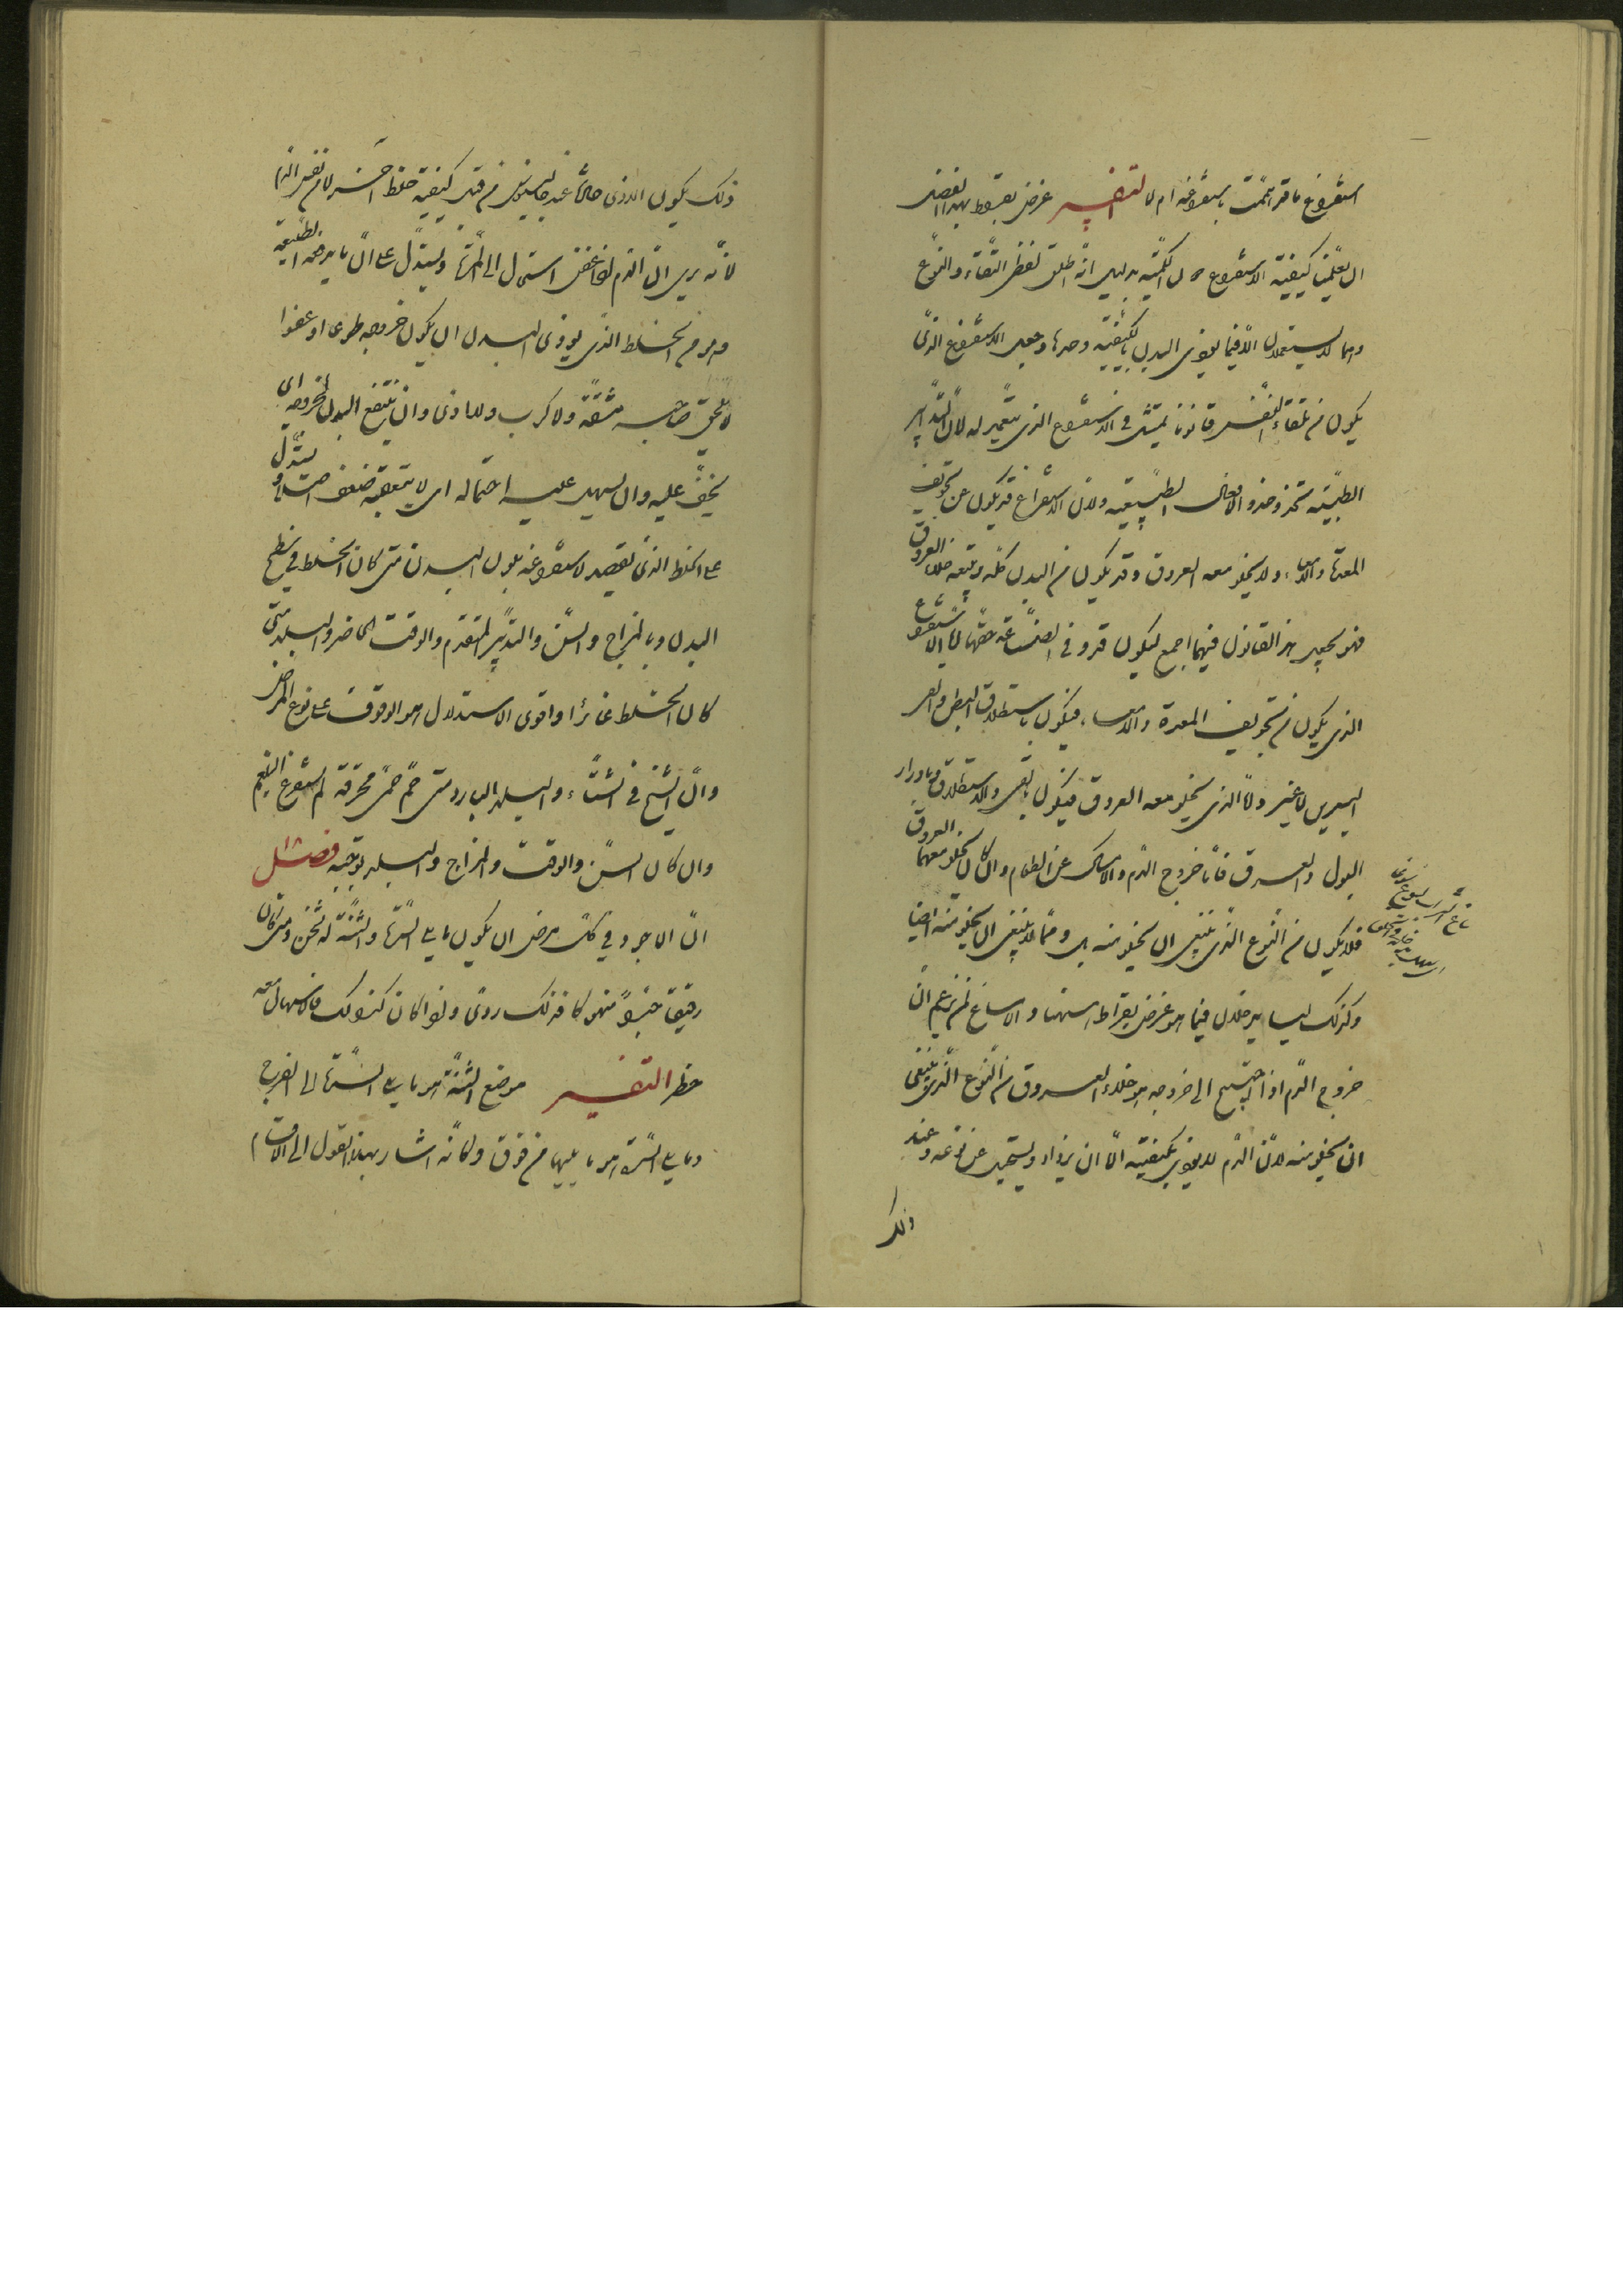 استفراغ ما قد هممت باستفراغه ام لا التفسير غرض بقراط بهذا الفصل
ان يعلمنا كيفية الاستفراغ لا الكمية بدليل انه اطلق لفظ النقاء والنوع
وهما لا يستعملان الا فيما يؤذي البدن بالكيفية وحدها وجعل الاستفراغ الذي
يكون من تلقاء النفس قانونا يمتثل في الاستفراغ الذي يتعمد له لان التدابير
الطبية تحذو حذو الافعال الطبيعية ولان الاستفراغ قد يكون من تجويف
المعدة والامعاء ولا يخلو معه العروق وقد يكون من البدن كله ويتبعه خلاء العروق
فهو يجعل هذا القانون فيهما اجمع ليكون قد وفى الصناعة حقها اما الاستفراغ
الذي يكون من تجويف المعدة والامعاء فيكون باستطلاق البطن والقيء
اليسيرين لا غير واما الذي يخلو معه العروق فيكون بالقيء والاستطلاق وبادرار
البول والعرق فاما خروج الدم والامساك عن الطعام وان كان يخلو معهما العروق
فلا يكون من النوع الذي ينبغي ان يخلو منه بل ومما لا ينبغي ان يخلو منه ايضا
وكذلك ليسا يدخلان فيما هو غرض بقراط هاهنا ولا مساغ لمن زعم ان
خروج الدم اذا احتيج الى خروجه هو خلاء العروق من النوع الذي ينبغي
ان يخلو منه لان الدم لا يؤذي بكيفيته الا ان يزداد ويستحيل عن نوعه وعند
ذلك
ذلك يكون الاذى حالا عند جالينوس من قبل كيفية خلط اخر لا من نفس الدم
لانه يرى ان الدم اذا عفن استحال الى المرة ويستدل على ان ما يدفعه الطبيعة
هو من الخلط الذي يؤذي البدن ان يكون خروجه طوعا او عفوا
لا يلحق صاحبه مشقة ولا كرب ولا اذى وان ينتفع البدن بخروجه اي
يخف عليه وان يسهل عليه احتماله اي لا يتعقبه ضعف اصلا ويستدل
على الخلط الذي يقصد لاستفراغه بلون البدن متى كان الخلط في سطح
البدن وبالمزاج والسن والتدبير المتقدم والوقت الحاضر والبلد متى
كان الخلط غائرا واقوى الاستدلال هو الوقوف على نوع المرض
وان الشيخ في الشتاء والبلد البارد متى حم حمى محرقة لم يستفرغ البلغم
وان كان السن والوقت والمزاج والبلد يوجبه فصل
ان الاجود في كل مرض ان يكون ما يلي السرة والثنة له ثخن ومتى كان
رقيقا جدا منهوكا فذلك ردي واذا كان كذلك فالاسهال معه
خطر التفسير موضع الثنة هو ما يلي السرة الى الفرج
وما يلي السرة هو ما يليها من فوق وكانه اشار بهذا القول الى الاقسام